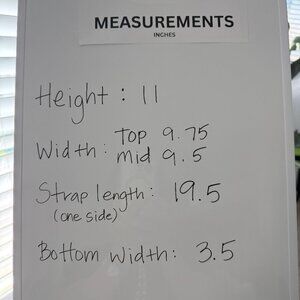 MEASUREMENTS
INCHES
Height : 11
Width : Top 9.75
mid 9.5
Strap length : 19.5
(one side)
Bottom Width : 3.5